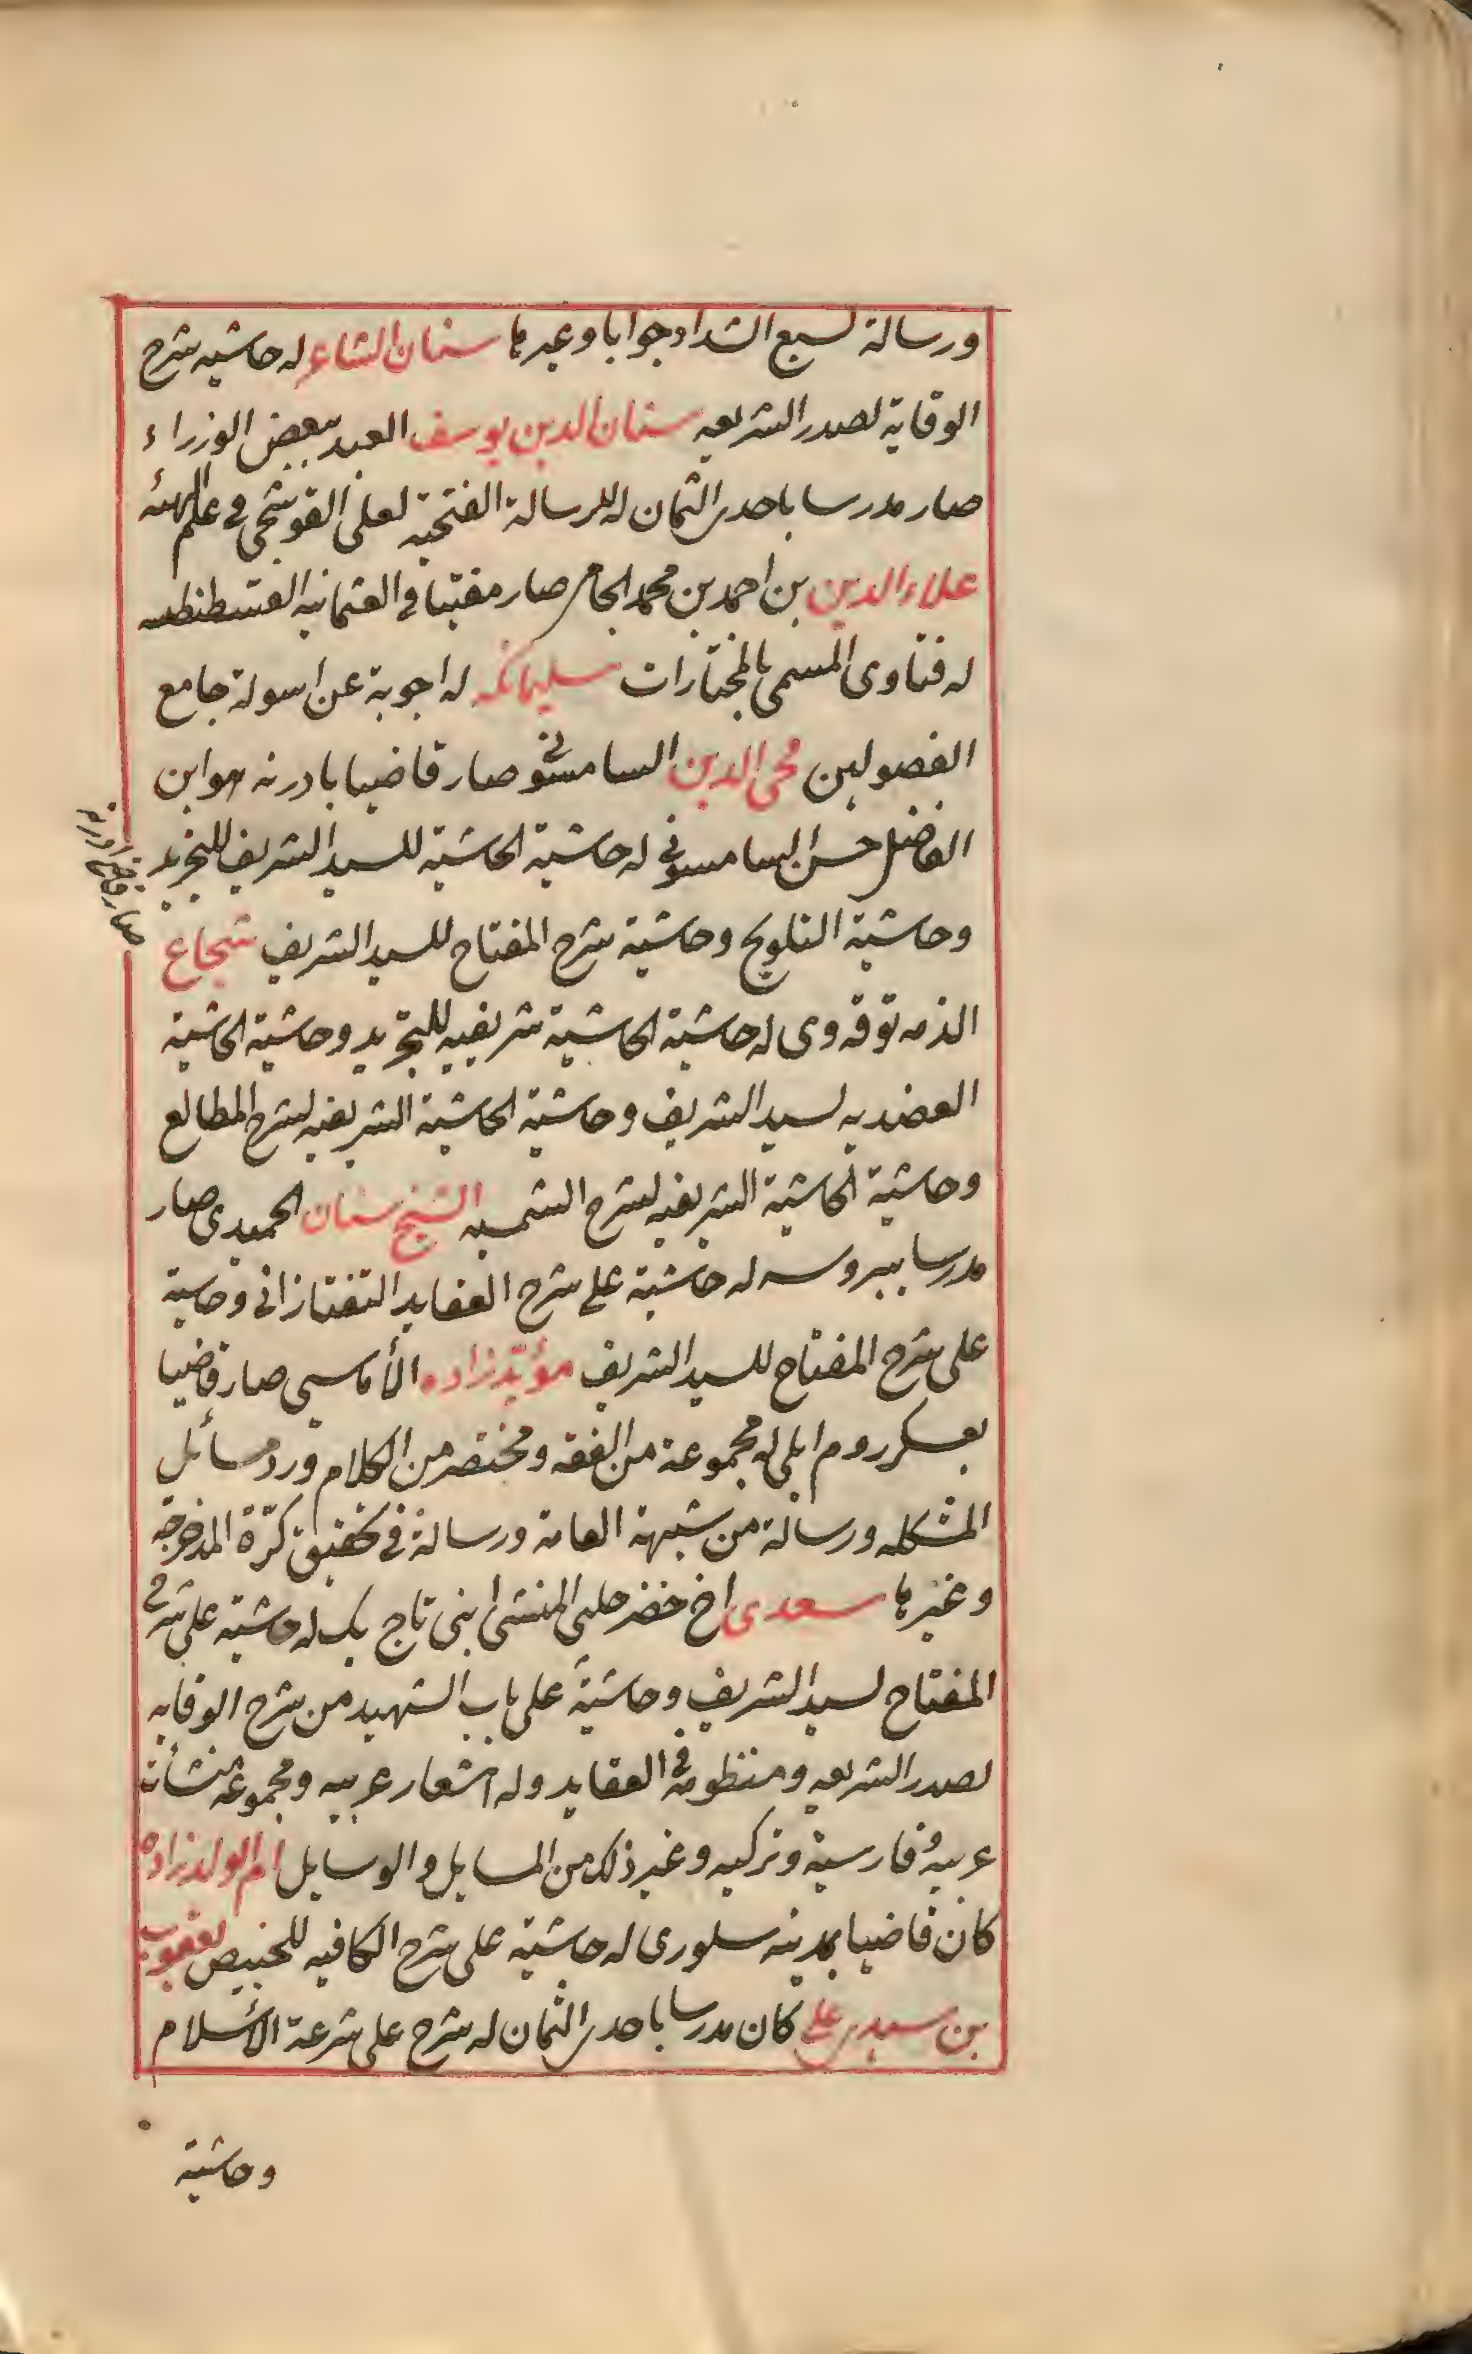 ورسالة لسبع الشداد جوابا وغيرها سنان الشاعر له حاشيه شرح
الوقاية لصدر الشريعه سنان الدين يوسف العبد ببعض الوزراء
صار مدرسا باحدى الثمان له للرسالة الفتحية لعلى القوشجى فى علم الهيئه
علاء الدين بن احمد بن محمد الجامى صار مفتيا فى العثمانيه القسطنطنيه
له فتاوى المسمى بالمختارات له اجوبة عن اسولة جامع
الفصولين محى الدين السامسونى صار قاضيا بادرنه هو ابن
الفاضل حسن السامسونى له حاشية الحاشية للسيد الشريف للتجريد
صار قاضى ادرنه
وحاشية التلويح وحاشية شرح المفتاح للسيد الشريف شجاع
الذمه توقه وى له حاشية الحاشية شريفيه للتجريد وحاشية الحاشية
العضديه لسيد الشريف وحاشية الحاشية الشريفيه لشرح المطالع
وحاشية الحاشية الشريفيه لشرح الشمسيه الشيخ سنان الحميدى صار
مدرسا ببروسه له حاشية على شرح العقايد التفتازانى وحاشية
على شرح المفتاح للسيد الشريف مؤيدزاده الأماسى صار قاضيا
بعسكر روم ايلى له مجموعة من الفقه ومختصر من الكلام ورد مسائل
المشكله ورسالة من شبهة العامة ورسالة فى تحقيق كرّة المدحرجه
وغيرها سعدى اخ خضر جلبى المنشى ابنى تاج بك له حاشية على شرح
المفتاح لسيد الشريف وحاشية على باب الشهيد من شرح الوقايه
لصدر الشريعه ومنظومه فى العقايد وله اشعار عربيه ومجموعه منشأت
عربيه وفارسية وتركيه وغير ذلك من المسايل والوسايل ام الولدزاده
كان قاضيا بمدينه سلورى له حاشية على شرح الكافيه للخبيص يعقوب
بن سيدى على كان مدرسا باحدى الثمان له شرح على شرعة الأسلام
وحاشية